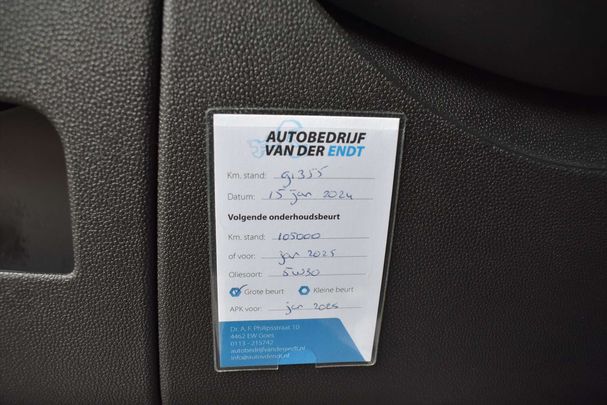 AUTOBEDRIJF
VAN DER ENDT
Km. stand: 91355
Datum: 15 jan 2024
Volgende onderhoudsbeurt
Km. stand: 105000
of voor: jan 2025
Oliesoort: 5W30
Grote beurt Kleine beurt
APK voor: jan 2025
Dr. A. F. Philipsstraat 10
4462 EW Goes
0113 - 215742
autobedrijfvanderendt.nl
info@autovdendt.nl